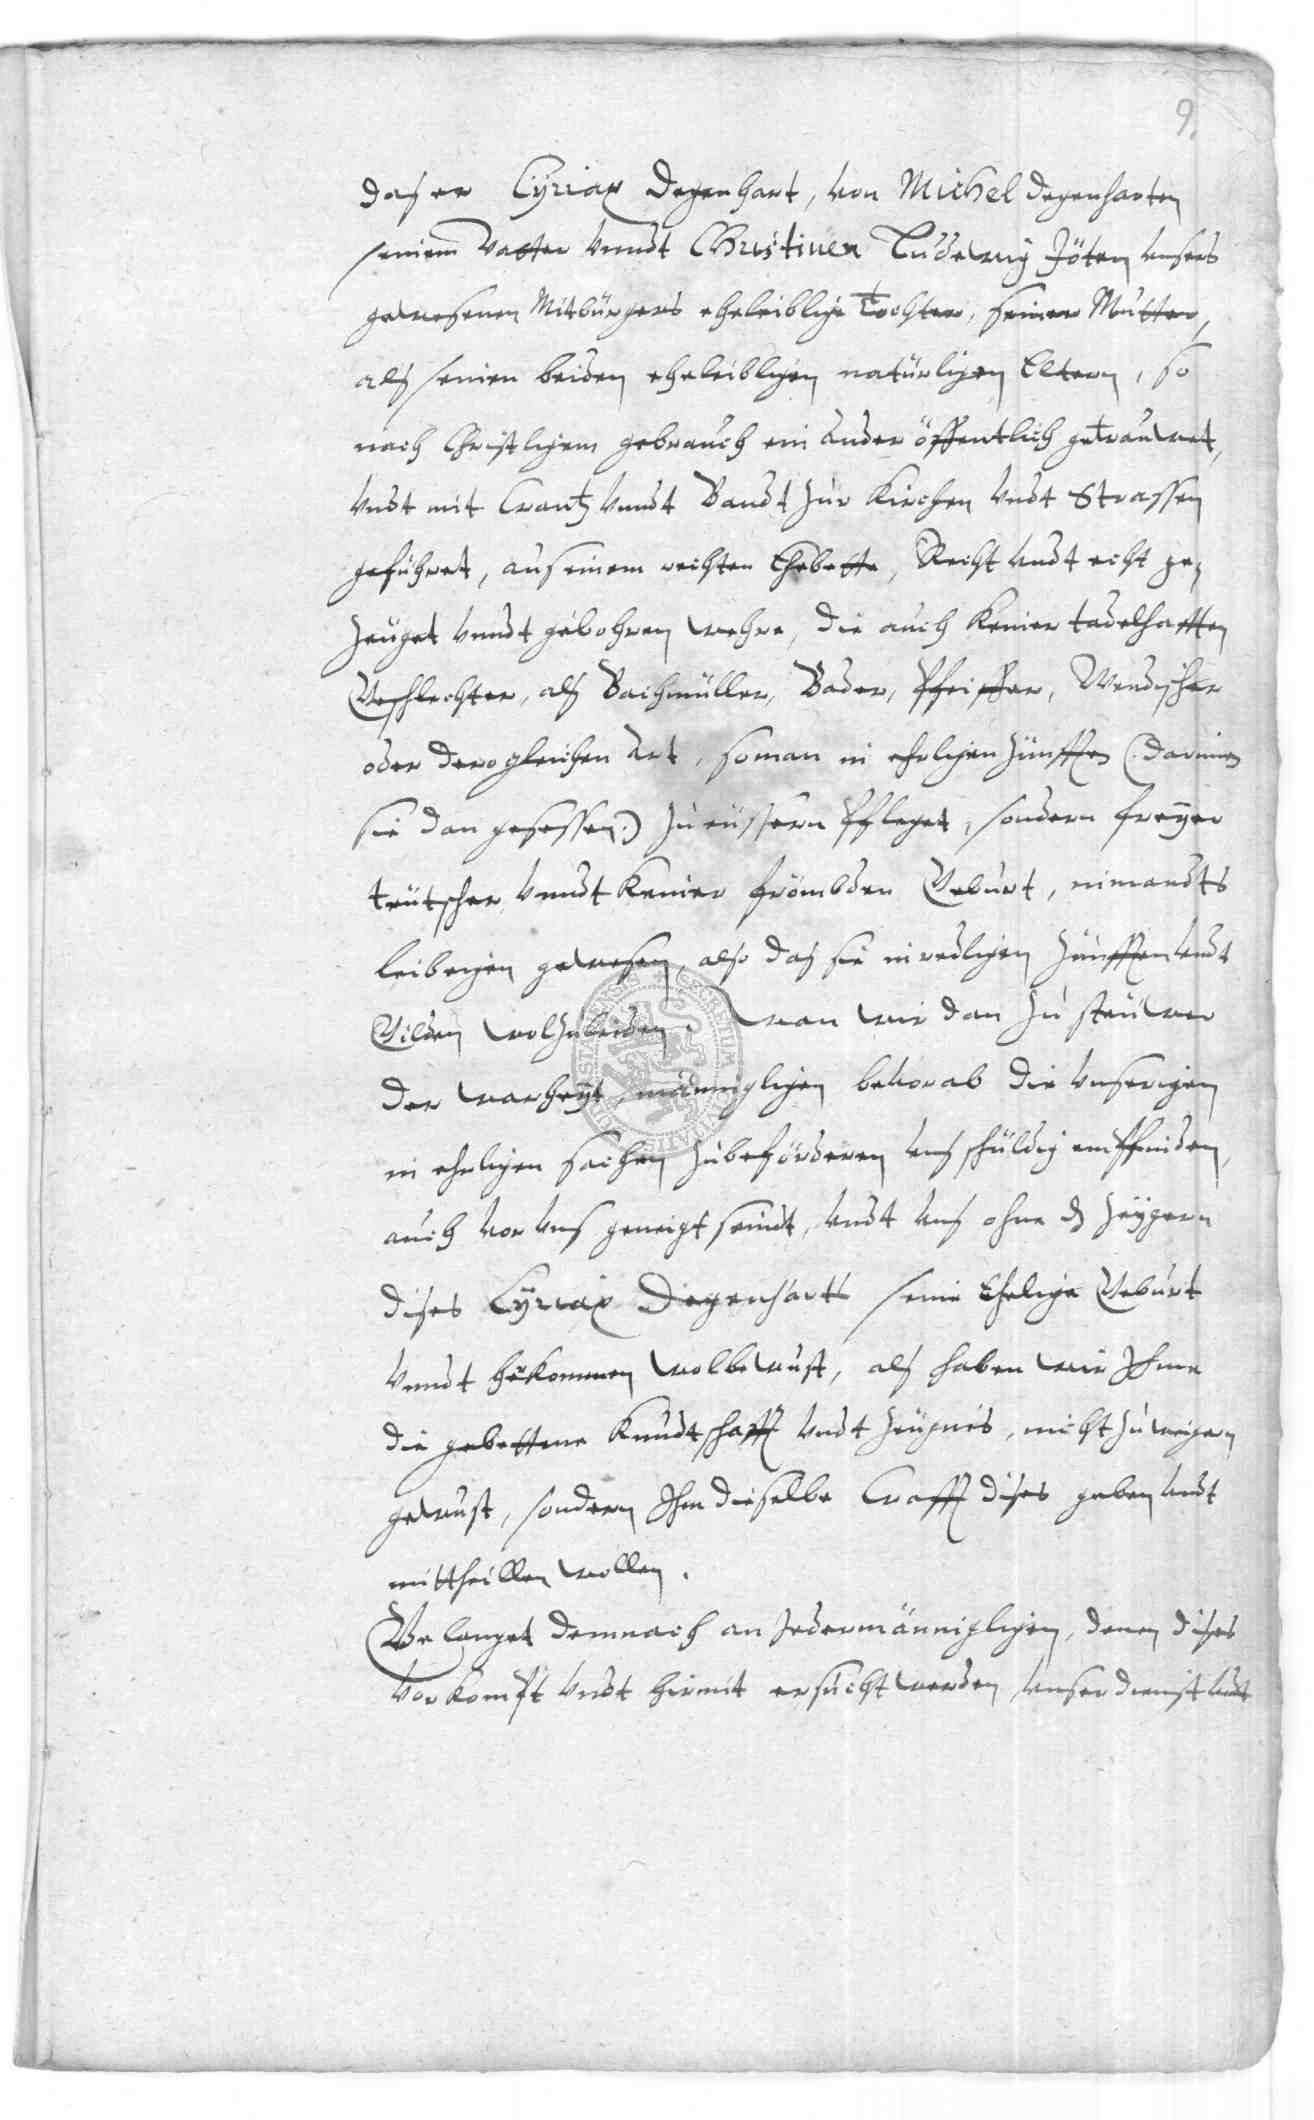 9.
das er Cyriax Degenhart, von Michel Degenharten
seinem Vatter vnndt Christinen Ludewig Jöten vnsers
gewesenen Mitbürgers eheleiblige Tochter, seiner Mutter,
alß seinen beiden eheleibligen natürligen Eltern, so
nach Christligem gebrauch ein ander öffentlich getrauwet,
vndt mit Crantz vnndt Bandt zur Kirchen vndt Strassen
geführet, aus einem rechten Ehebette, Recht vndt echt ge„
zeuget vnndt gebohren wehre, die auch keiner tadelhafften
Geschlechter, alß Bachmüller, Bader, Pfeiffer, Wendischer
oder dero gleichen Art, so man in ehrligen Zünfften (: darinnen
sie dan gesessen :) zu eüssern pfleget, sondern freyer
teütscher vnndt keiner frömbden Geburt, nimandts
leibeigen gewesen, also das sie in redligen Zünfften vndt
Gilden wol zuleiden. Wan wir dan zu steüwer
der warheyt, männigligen bevorab die vnserigen
in ehrligen sachen zubeförderen vns schuldig empfinden,
auch vor vns geneigt seindt, vndt vns ohne
dises Cyriax Degenharts seine Ehelige Geburt
vnndt herkommen wolbewust, alß haben wir Ihme
die gebettene Kundtschafft vndt Zeügnis, nicht zu weigern
gewust, sondern Ihm dieselbe Crafft dises geben vndt
mittheillen wollen.
Gelanget demnach an Jedermännigligen, denen dises
vorkompt vndt hirmit ersucht werden vnser dienst vndt